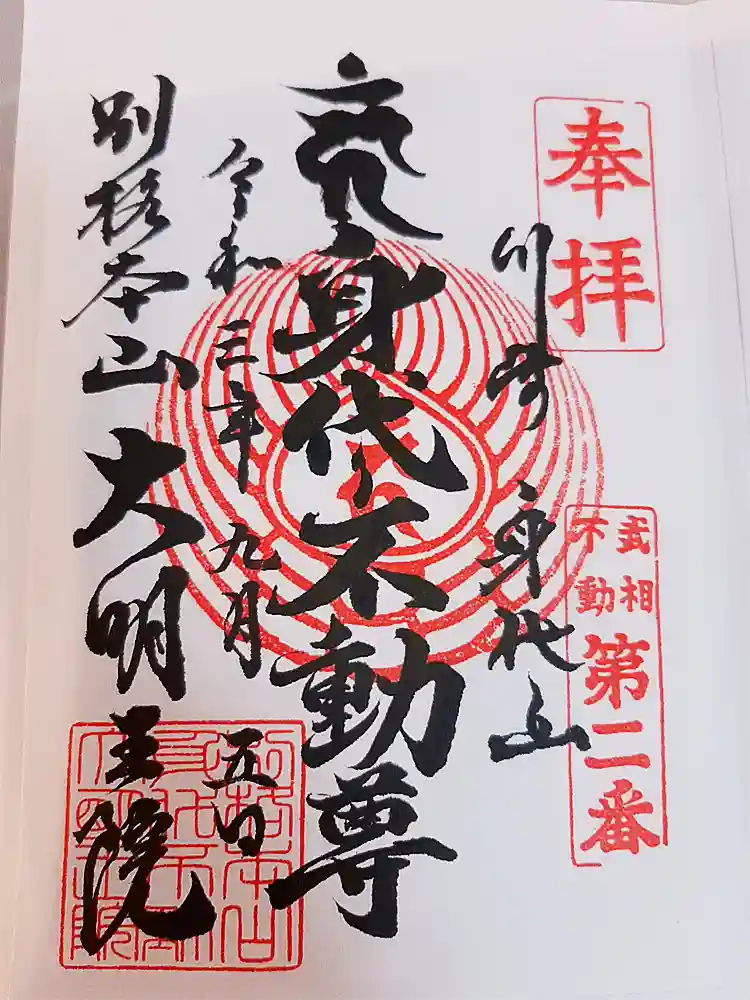 奉拝
武相
不動
第二番
川崎
身代山
身代不動尊
令和三年九月五日
別格本山大明王院